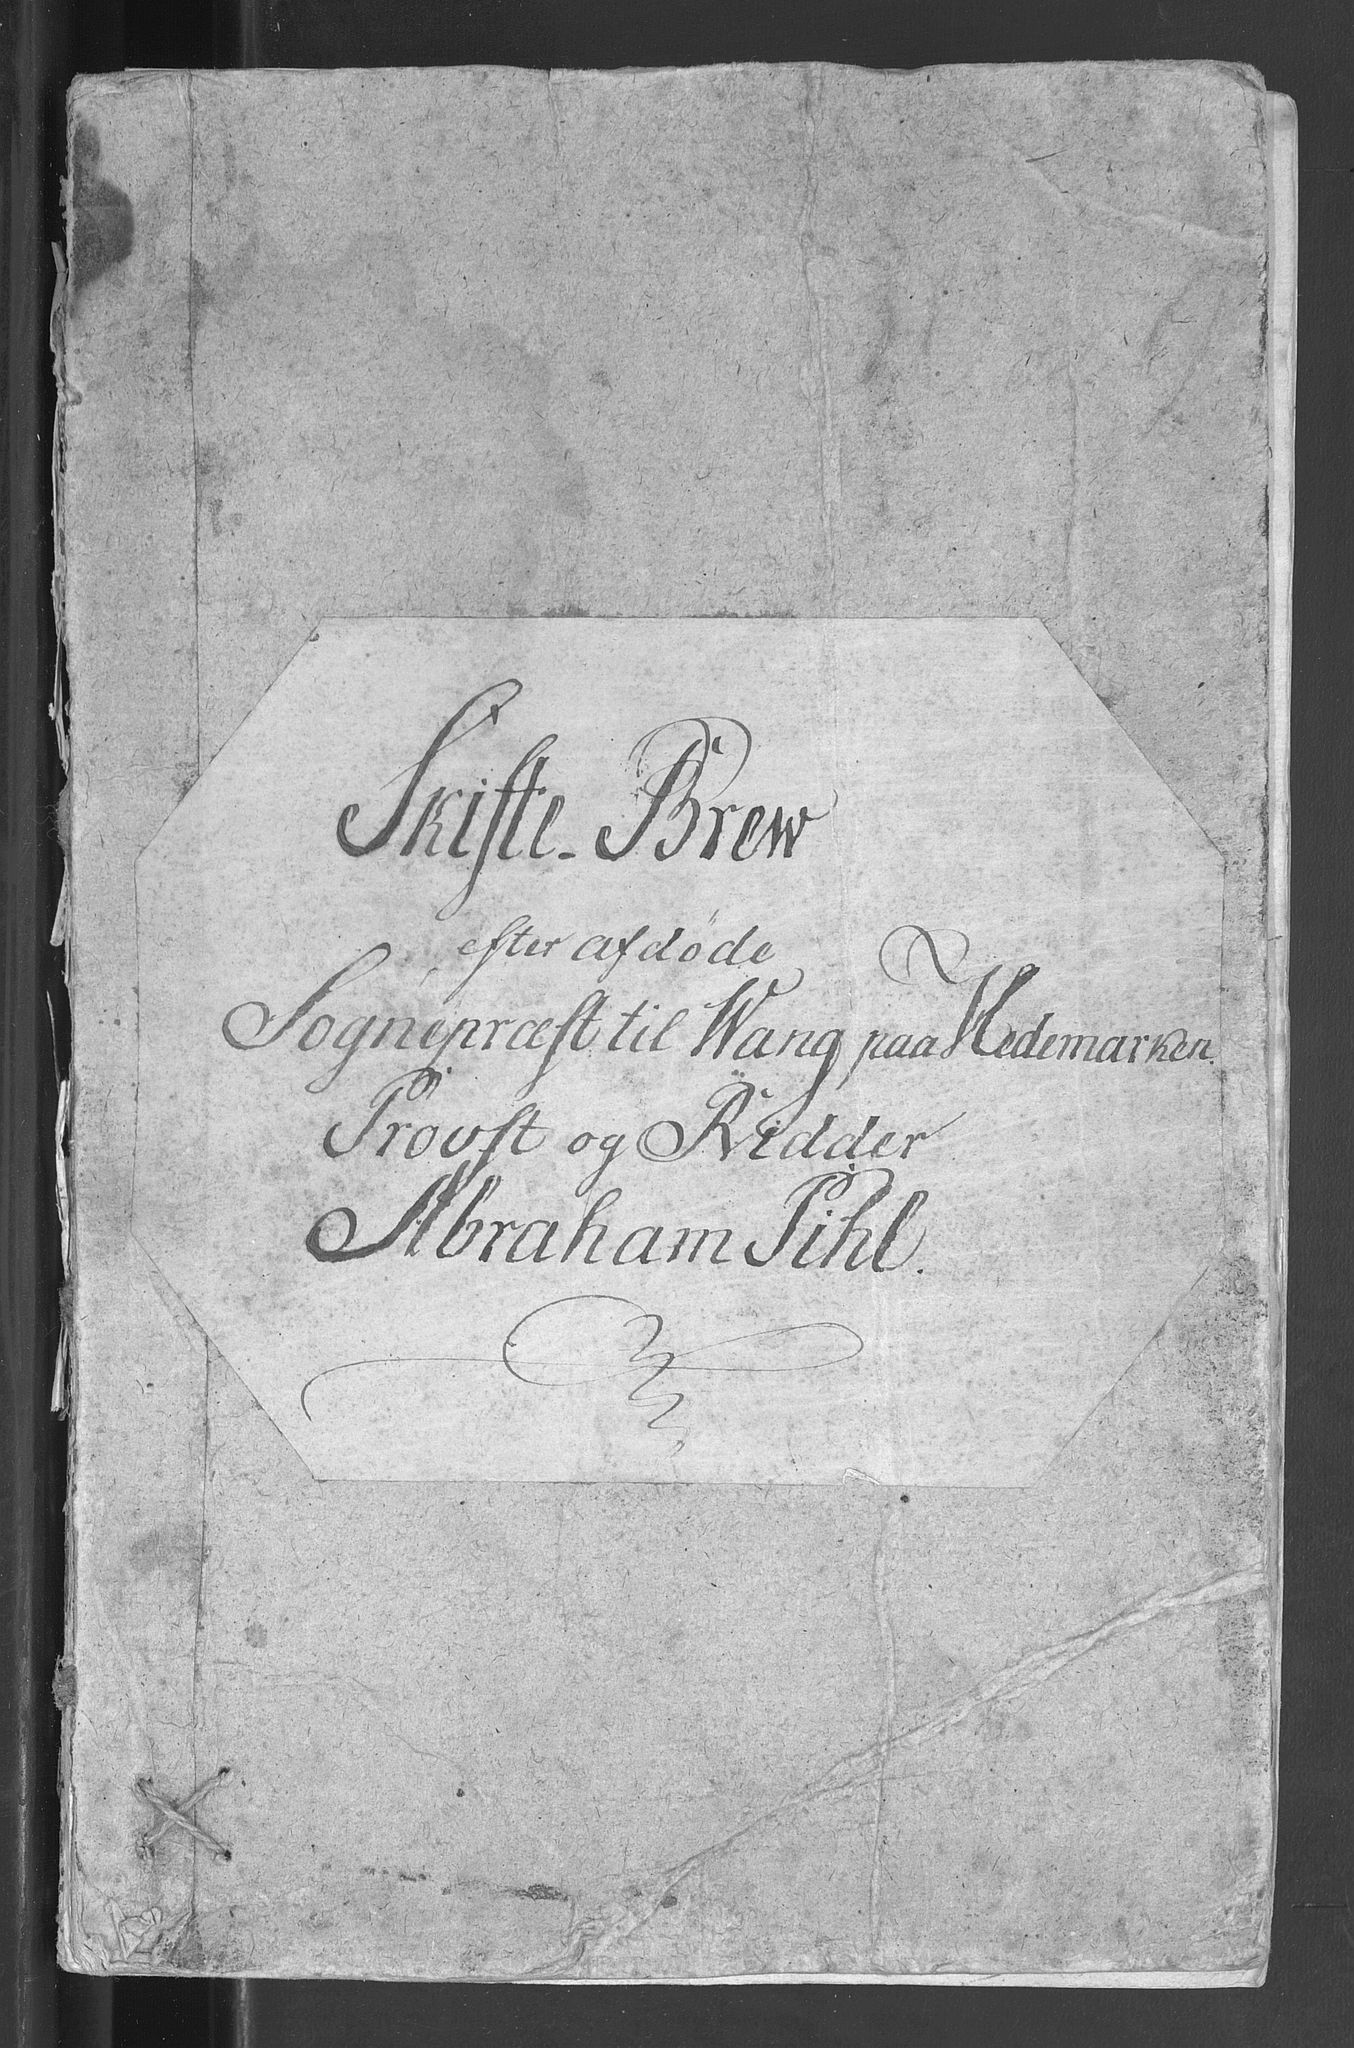 Skifte-Brew
efter afdöde
Sognepræst til Wang paa Hedemarken.
Provst og Ridder
Abraham Pihl.